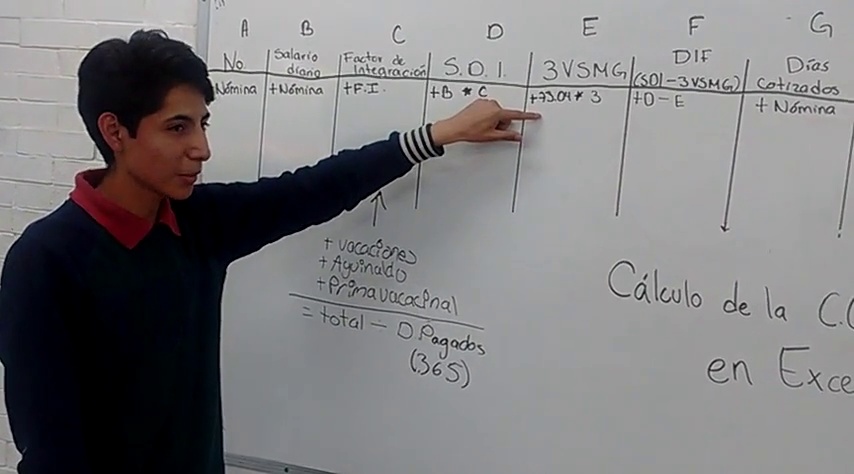 A B C D E F G
No Salario diario Factor de Integración S.D.I. 3VSMG DIF (SDI-3VSMG) Días Cotizados
Nómina +Nómina +F.I. +B * C +73.04 * 3 +D-E + Nómina
+ Vacaciones
+ Aguinaldo
+Prima vacacional
= total ÷ D Pagados
(365)
Cálculo de la C.
en Exce